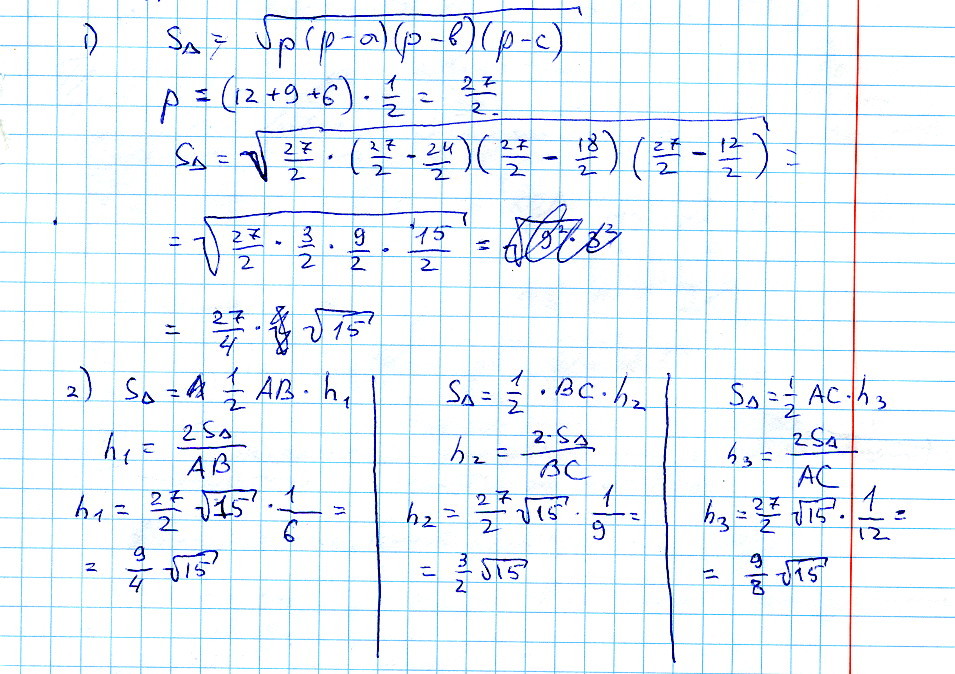 1) S△ = √(p(p-a)(p-b)(p-c))
p = (12+9+6) · 1/2 = 27/2.
S△ = √(27/2 · (27/2 - 24/2)(27/2 - 18/2)(27/2 - 12/2)) =
= √(27/2 · 3/2 · 9/2 · 15/2) =
= 27/4 · √15
2) S△ = 1/2 AB · h₁
h₁ = 2S△/AB
h₁ = 27/2 √15 · 1/6 =
= 9/4 √15
S△ = 1/2 · BC · h₂
h₂ = 2·S△/BC
h₂ = 27/2 √15 · 1/9 =
= 3/2 √15
S△ = 1/2 AC · h₃
h₃ = 2S△/AC
h₃ = 27/2 √15 · 1/12 =
= 9/8 √15